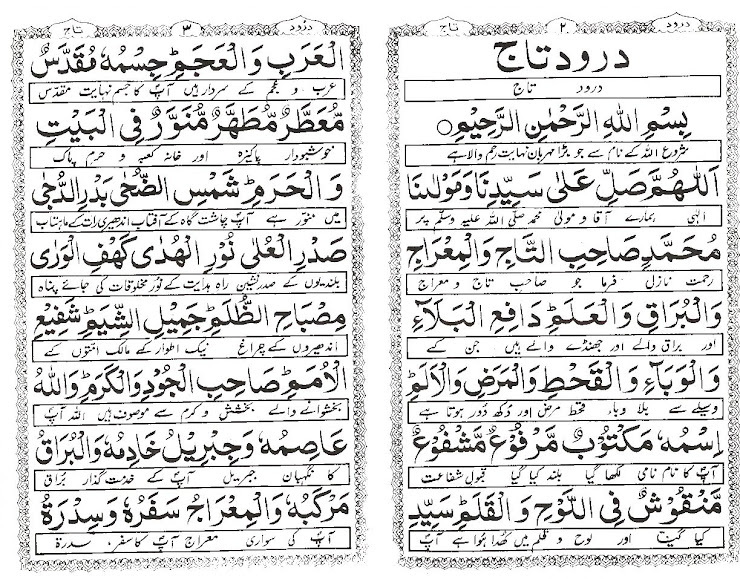 درود ٢ تاج
درود تاج
درود تاج
بِسْمِ اللهِ الرَّحْمٰنِ الرَّحِيْمِ ○
شروع اللہ کے نام سے جو بڑا مہربان نہایت رحم والا ہے
اَللّٰهُمَّ صَلِّ عَلٰى سَيِّدِنَا وَمَوْلٰىنَا
الٰہی ہمارے آقا و مولیٰ محمد صلی اللہ علیہ وسلم پر
مُحَمَّدٍ صَاحِبِ التَّاجِ وَالْمِعْرَاجِ
رحمت نازل فرما جو صاحب تاج و معراج
وَالْبُرَاقِ وَالْعَلَمِ ؕ دَافِعِ الْبَلَآءِ
اور براق والے اور جھنڈے والے ہیں جن کے
وَالْوَبَآءِ وَالْقَحْطِ وَالْمَرَضِ وَالْاَلَمِ ؕ
وسیلے سے بلا وبا، قحط مرض اور دُکھ دُور ہوتا ہے
اِسْمُهٗ مَكْتُوْبٌ مَّرْفُوْعٌ مَّشْفُوْعٌ
آپ کا نام نامی لکھا گیا بلند کیا گیا قبول شفاعت
مَّنْقُوْشٌ فِى اللَّوْحِ وَالْقَلَمِ ؕ سَيِّدِ
کیا گیا اور لوح و قلم میں کھدا ہوا ہے آپ
درود ٣ تاج
الْعَرَبِ وَالْعَجَمِ ؕ جِسْمُهٗ مُقَدَّسٌ
عرب و عجم کے سردار ہیں آپ کا جسم نہایت مقدس
مُّعَطَّرٌ مُّطَهَّرٌ مُّنَوَّرٌ فِى الْبَيْتِ
خوشبودار پاکیزہ اور خانہ کعبہ و حرم پاک
وَالْحَرَمِ ؕ شَمْسِ الضُّحٰى بَدْرِ الدُّجٰى
میں منور ہے آپ چاشت گاہ کے آفتاب اندھیری رات کے ماہتاب
صَدْرِ الْعُلٰى نُوْرِ الْهُدٰى كَهْفِ الْوَرٰى
بلندیوں کے صدر نشین راہ ہدایت کے نور مخلوقات کی جائے پناہ
مِصْبَاحِ الظُّلَمِ ؕ جَمِيْلِ الشِّيَمِ ؕ شَفِيْعِ
اندھیروں کے چراغ نیک اطوار کے مالک امتوں کے
الْاُمَمِ ؕ صَاحِبِ الْجُوْدِ وَالْكَرَمِ ؕ وَاللهُ
بخشوانے والے بخشش و کرم سے موصوف ہیں اللہ آپ
عَاصِمُهٗ وَجِبْرِيْلُ خَادِمُهٗ وَالْبُرَاقُ
کا نگہبان جبریل آپ کے خدمت گذار براق
مَرْكَبُهٗ وَالْمِعْرَاجُ سَفَرُهٗ وَسِدْرَةُ
آپ کی سواری معراج آپ کا سفر، سدرۃ